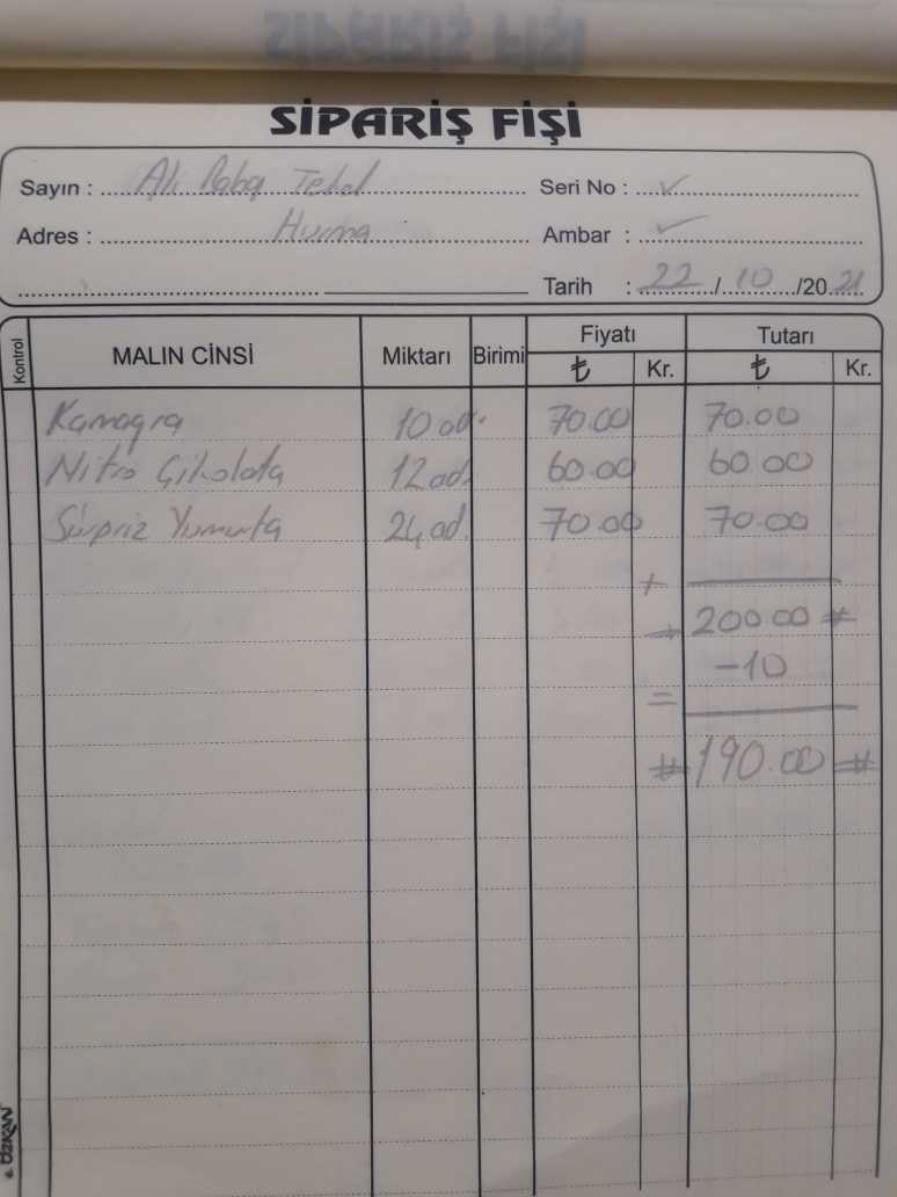 SİPARİŞ FİŞİ
Sayın : Ali Baba Tekel Seri No : ✓
Adres : Hurma Ambar : ✓
Tarih : 22/10/2021
Kontrol MALIN CİNSİ Miktarı Birimi Fiyatı Tutarı
₺ Kr. ₺ Kr.
Kamagra 10 ad. 70.00 70.00
Nitro Çikolata 12 ad. 60.00 60.00
Sürpriz Yumurta 24 ad. 70.00 70.00
+
200.00 #
-10
=
# 190.00 #
ÖZKAN